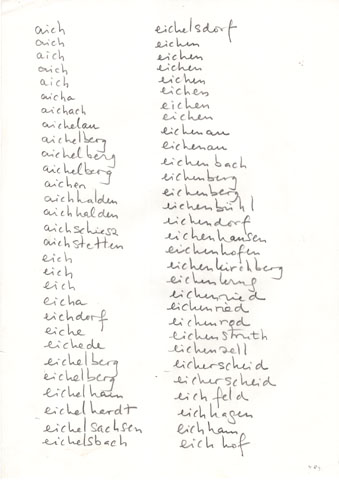 aich
aich
aich
aich
aich
aicha
aichach
aichelau
aichelberg
aichelberg
aichelberg
aichen
aichhalden
aichhalden
aichschiess
aichstetten
eich
eich
eich
eicha
eichdorf
eiche
eichede
eichelberg
eichelberg
eichelhain
eichelhardt
eichelsachsen
eichelsbach
eichelsdorf
eichen
eichen
eichen
eichen
eichen
eichen
eichen
eichenau
eichenau
eichenbach
eichenberg
eichenberg
eichenbühl
eichendorf
eichenhausen
eichenhofen
eichenkirchberg
eichenried
eichenried
eichenrod
eichenstruth
eichenzell
eicherscheid
eicherscheid
eichfeld
eichhagen
eichham
eichhof